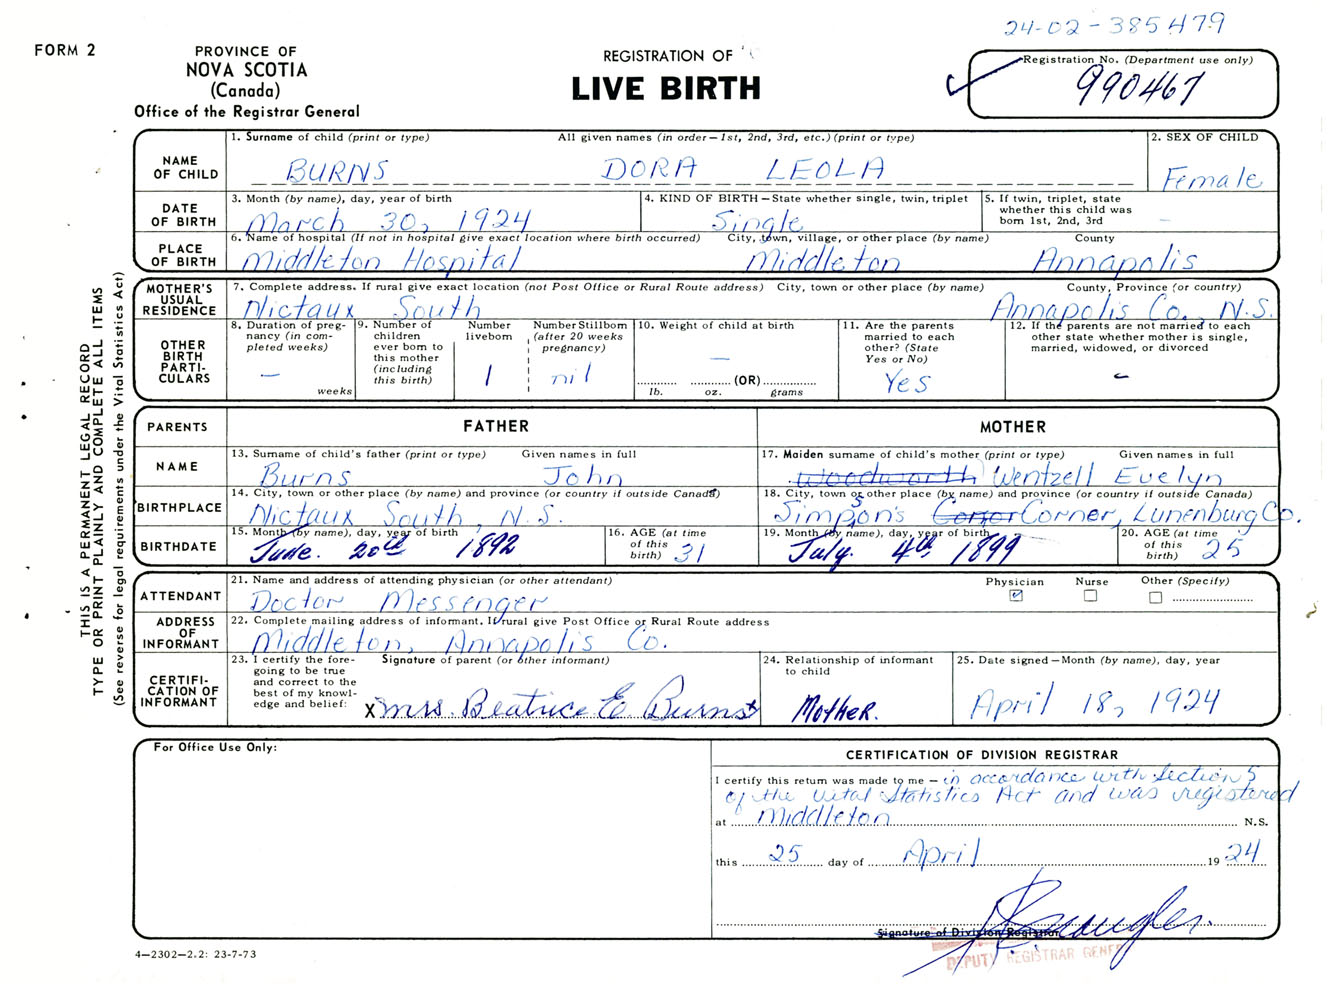 24-02-385479
FORM 2
PROVINCE OF
NOVA SCOTIA
(Canada)
Office of the Registrar General
REGISTRATION OF
LIVE BIRTH
Registration No. (Department use only)
990467
THIS IS A PERMANENT LEGAL RECORD
TYPE OR PRINT PLAINLY AND COMPLETE ALL ITEMS
(See reverse for legal requirements under the Vital Statistics Act)
NAME OF CHILD
1. Surname of child (print or type) All given names (in order—1st, 2nd, 3rd, etc.) (print or type)
BURNS DORA LEOLA
2. SEX OF CHILD
Female
DATE OF BIRTH
3. Month (by name), day, year of birth
March 30, 1924
4. KIND OF BIRTH—State whether single, twin, triplet
Single
5. If twin, triplet, state whether this child was born 1st, 2nd, 3rd
—
PLACE OF BIRTH
6. Name of hospital (If not in hospital give exact location where birth occurred) City, town, village, or other place (by name) County
Middleton Hospital Middleton Annapolis
MOTHER'S USUAL RESIDENCE
7. Complete address. If rural give exact location (not Post Office or Rural Route address) City, town or other place (by name) County, Province (or country)
Nictaux South Annapolis Co., N.S.
OTHER BIRTH PARTI-CULARS
8. Duration of preg-nancy (in com-pleted weeks)
— weeks
9. Number of children ever born to this mother (including this birth)
Number liveborn
1
Number Stillborn (after 20 weeks pregnancy)
nil
10. Weight of child at birth
—
(OR)
lb. oz. grams
11. Are the parents married to each other? (State Yes or No)
Yes
12. If the parents are not married to each other state whether mother is single, married, widowed, or divorced
—
PARENTS FATHER MOTHER
NAME
13. Surname of child's father (print or type) Given names in full
Burns John
17. Maiden surname of child's mother (print or type) Given names in full
Woodworth Wentzell Evelyn
BIRTHPLACE
14. City, town or other place (by name) and province (or country if outside Canada)
Nictaux South, N.S.
18. City, town or other place (by name) and province (or country if outside Canada)
Simpson's Corner, Lunenburg Co.
BIRTHDATE
15. Month (by name), day, year of birth
June. 20th 1892
16. AGE (at time of this birth)
31
19. Month (by name), day, year of birth
July. 4th 1899
20. AGE (at time of this birth)
25
ATTENDANT
21. Name and address of attending physician (or other attendant)
Doctor Messenger
Physician Nurse Other (Specify)
ADDRESS OF INFORMANT
22. Complete mailing address of informant. If rural give Post Office or Rural Route address
Middleton, Annapolis Co.
CERTIFI-CATION OF INFORMANT
23. I certify the fore-going to be true and correct to the best of my knowl-edge and belief:
Signature of parent (or other informant)
X Mrs. Beatrice E Burns
24. Relationship of informant to child
Mother.
25. Date signed—Month (by name), day, year
April 18, 1924
For Office Use Only:
CERTIFICATION OF DIVISION REGISTRAR
I certify this return was made to me — in accordance with Section 5
of the Vital Statistics Act and was registered
at Middleton N.S.
this 25 day of April 1924
Signature of Division Registrar
DEPUTY REGISTRAR GENERAL
4—2302—2.2: 23-7-73